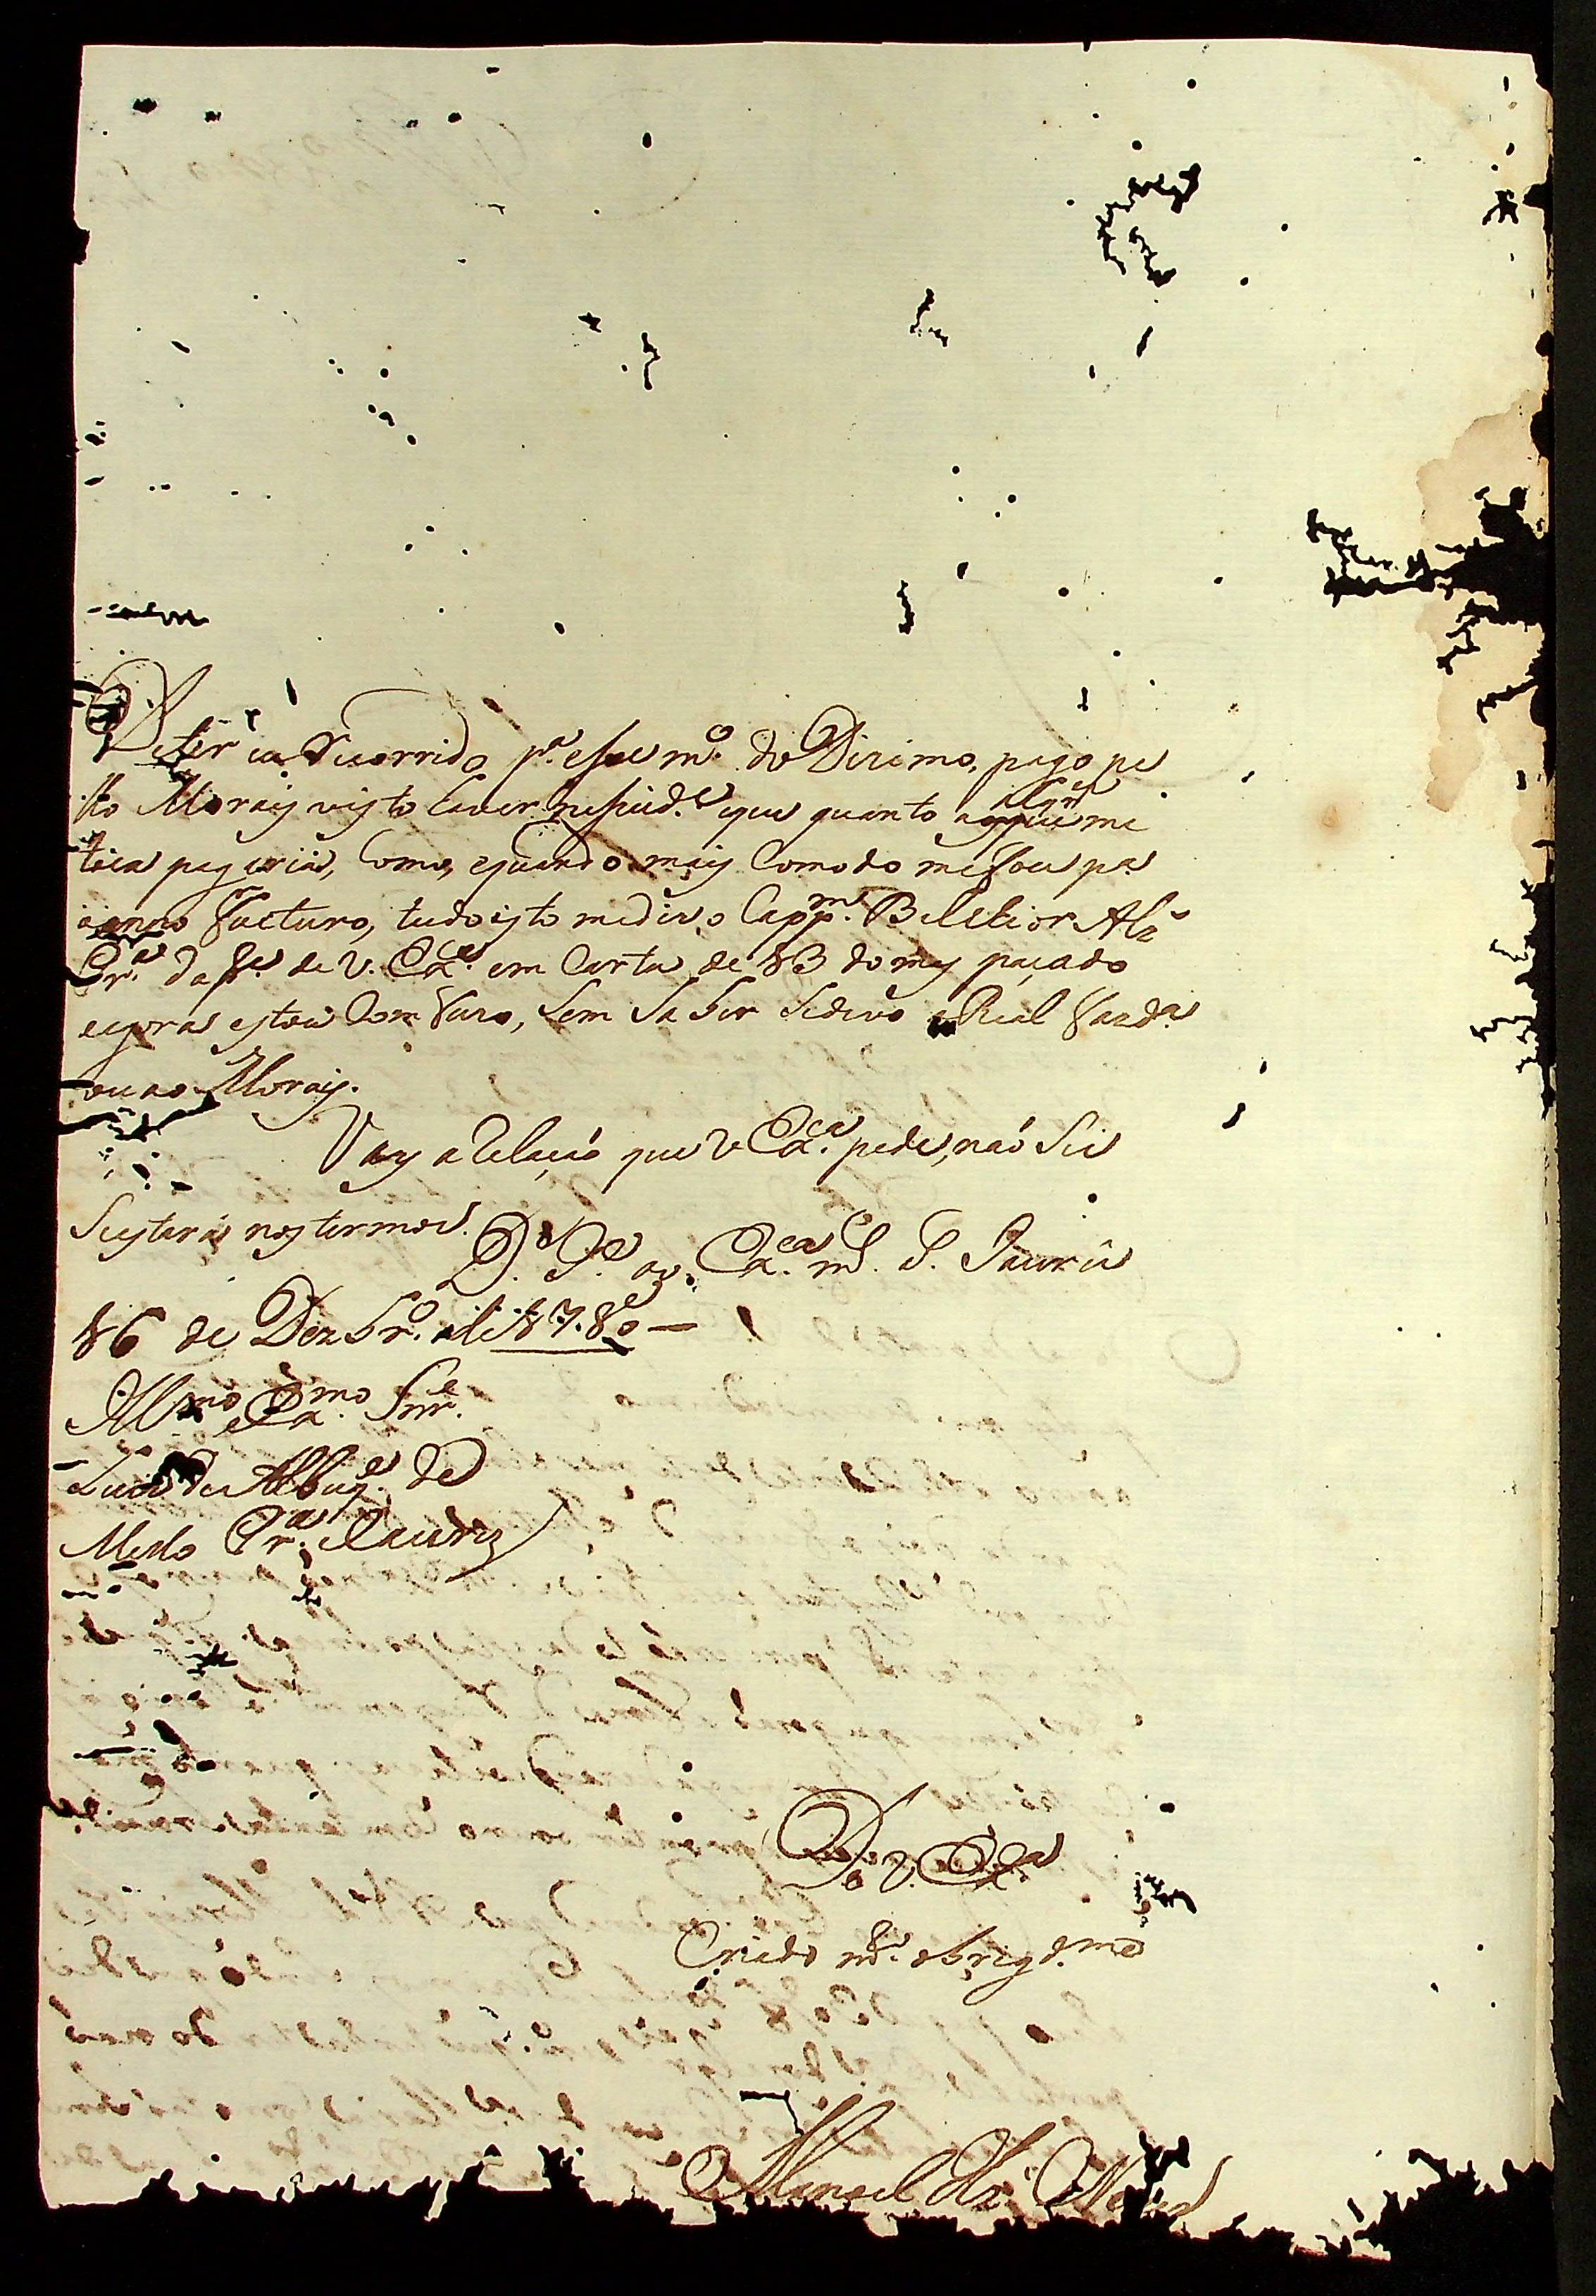 ter eu Recorrido pª. esse mº. do Dizimo, pago pe
sto Morais visto haver nessid.e e que quanto algũ me
toca pagaria, como, e quando mais Comodo me fou pª
o anno Facturo, tudo isto me diz o Capp.m Belchior Alz
Prª. da pe. de V. Exª. em Carta de 13 do mes paçado
e agora estou Com Furo, Sem Saber Se devo a Real Fazdª.
ou ao Morais.
Vay a Relação que V Exca. pede, não Sei
Se estará nos termos.
D. G.e a V. Exca. m.s a.s Jaurú
16 de Dezbrº. de 1780 —
Illmo e Exmo Snr.e
Luis de Albuq.e de
Mello Prª. e Caceres
De V. Exª
Criado m.to obrig.dmo
Manoel Vz.